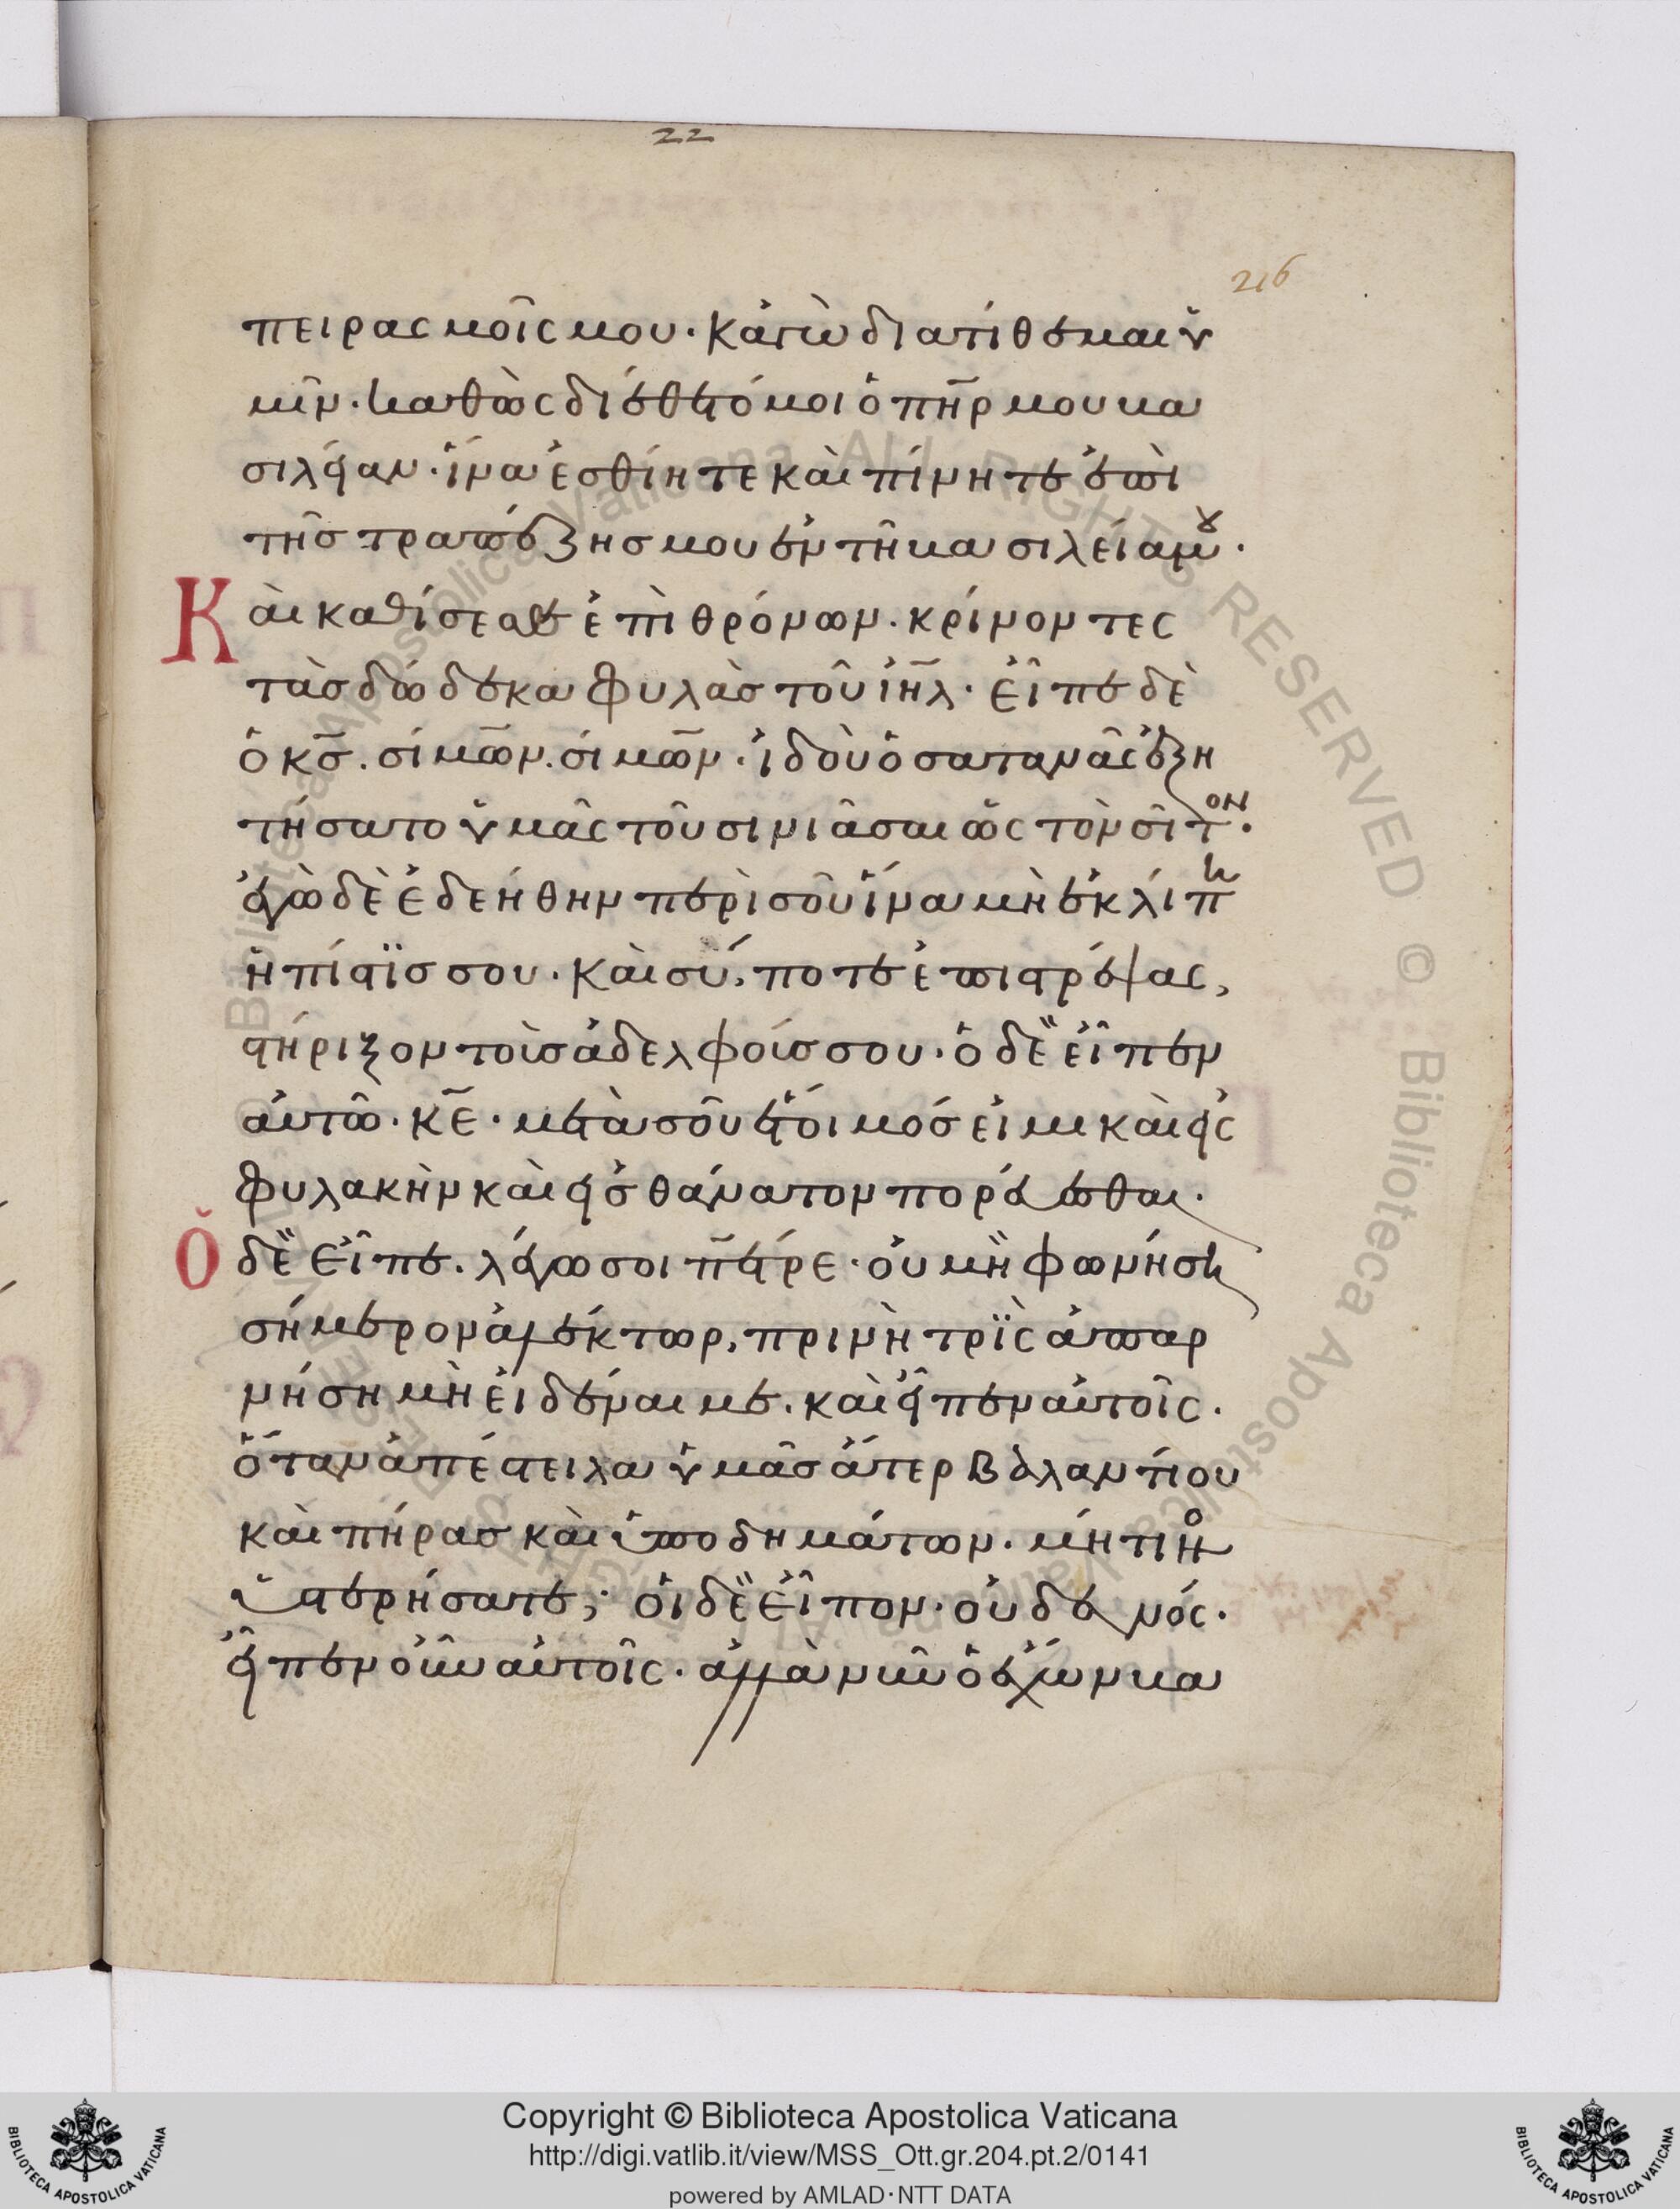 22
216
πειρασμοῖς μου. Κἀγὼ διατίθεμαι ὑ
μῖν. καθὼς διέθετό μοι ὁ πη̅ρ μου βα
σιλείαν. ἵνα ἐσθίητε καὶ πίνητε ἐπὶ
τῆς τραπέζης μου ἐν τῆ βασιλείαμȣ.
Καὶ καθίσεσθε ἐπὶ θρόνων. κρίνοντες
τὰς δώδεκα φυλὰς τοῦ ἰη̅λ. εἶπε δὲ
ὁ κς̅. σίμων. σίμων. ἰδοὺ ὁ σατανᾶς ἐξη
τήσατο ὑμᾶς τοῦ σινιᾶσαι ὡς τὸν σῖτον.
ἐγὼ δὲ ἐδεήθην περὶ σοῦ ἵνα μὴ ἐκλίπη
ἡ πίστϊς σου. Καὶ σύ, ποτε ἐπιστρέψας,
στήριξον τοὺς ἀδελφούς σου. ὁ δὲ εἶπεν
αὐτῶ. κε̅. μετὰ σοῦ ἕτοιμός εἰμι καὶ εἰς
φυλακὴν καὶ εἰς θάνατον πορεύεσθαι.
Ὁ δὲ εἶπε. λέγω σοι πέτρε. οὐ μὴ φωνήσει
σήμερον ἀλέκτωρ, πρινὴ τρὶς ἀπαρ
νήση μὴ εἰδέναι με. καὶ εἶπεν αὐτοῖς.
ὅταν ἀπέστειλα ὑμᾶς ἄτερ βαλαντίου
καὶ πήρας καὶ ὑποδημάτων. μή τινο
ὑστερήσατε; οἱ δὲ εἶπον. οὐδενός.
εἶπεν οὖν αὐτοῖς. ἀλλὰ νῦν ὁ ἔχων βα
© Biblioteca Apostolica Vaticana ALL RIGHTS RESERVED © Biblioteca Apostolica Vaticana ALL RIGHTS RESERVED
Copyright © Biblioteca Apostolica Vaticana
http://digi.vatlib.it/view/MSS_Ott.gr.204.pt.2/0141
powered by AMLAD·NTT DATA
BIBLIOTECA APOSTOLICA VATICANA
BIBLIOTECA APOSTOLICA VATICANA